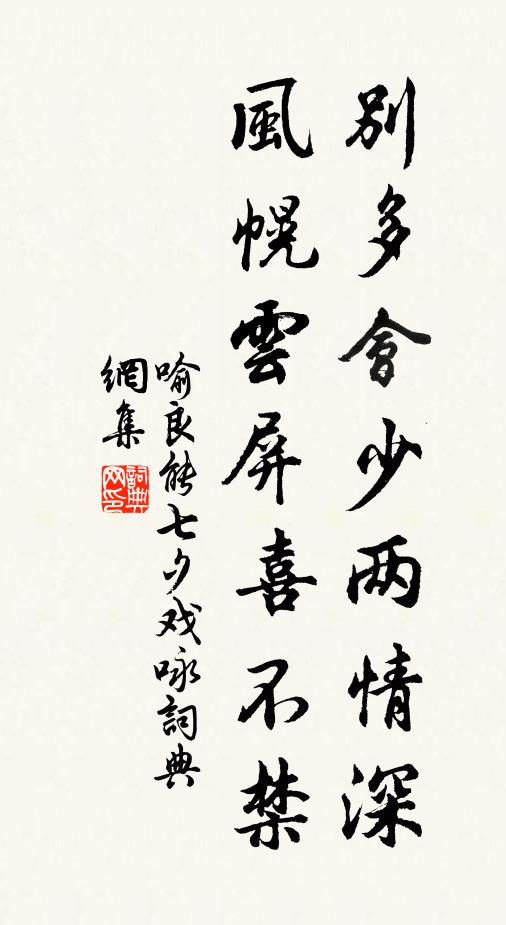 別多會少两情深
風幌雲屏喜不禁
喻良能七夕戏咏詞典
網集
詞典
网印